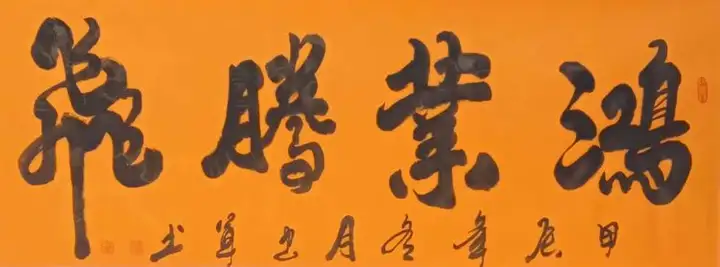 鴻業騰飛
甲辰年冬月书